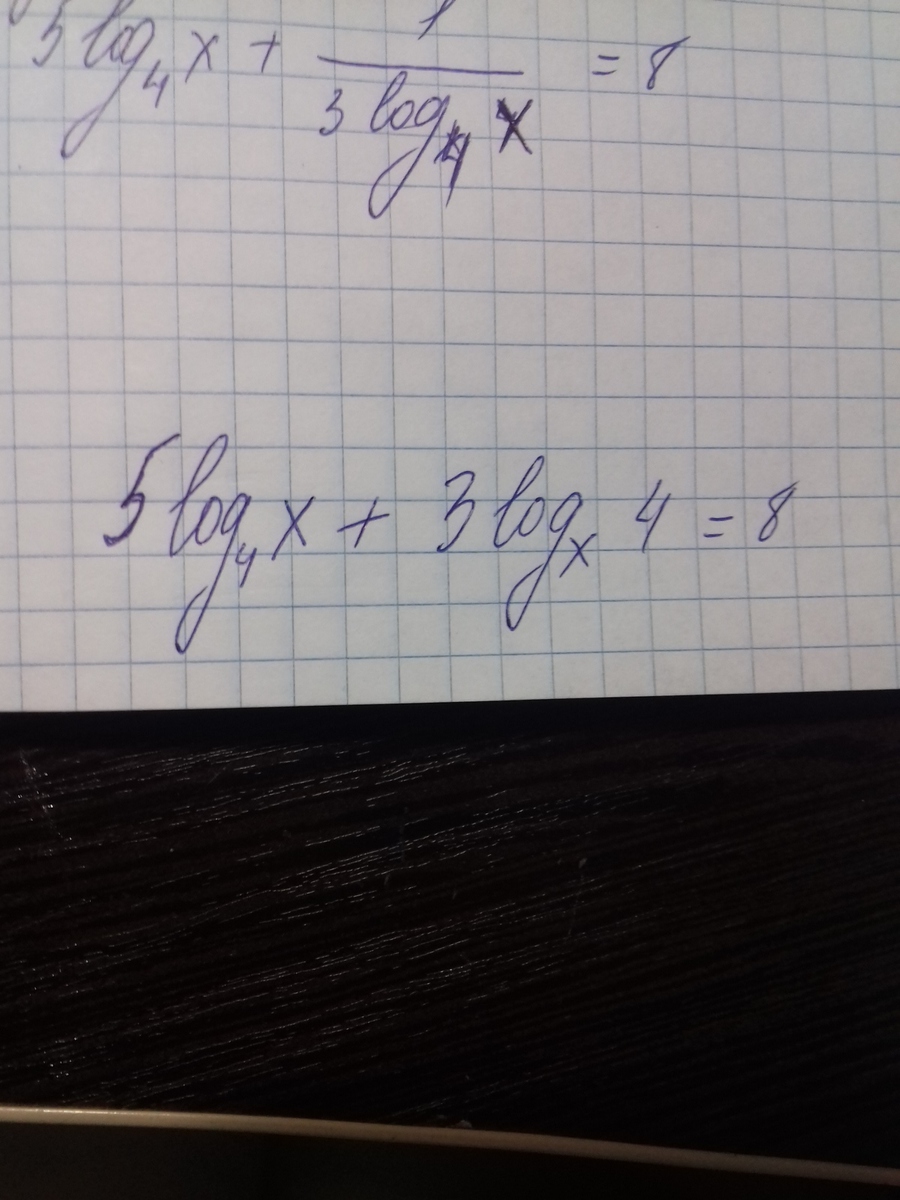 5 log₄ x + 1 / (3 log₄ x) = 8
5 log₄ x + 3 logₓ 4 = 8